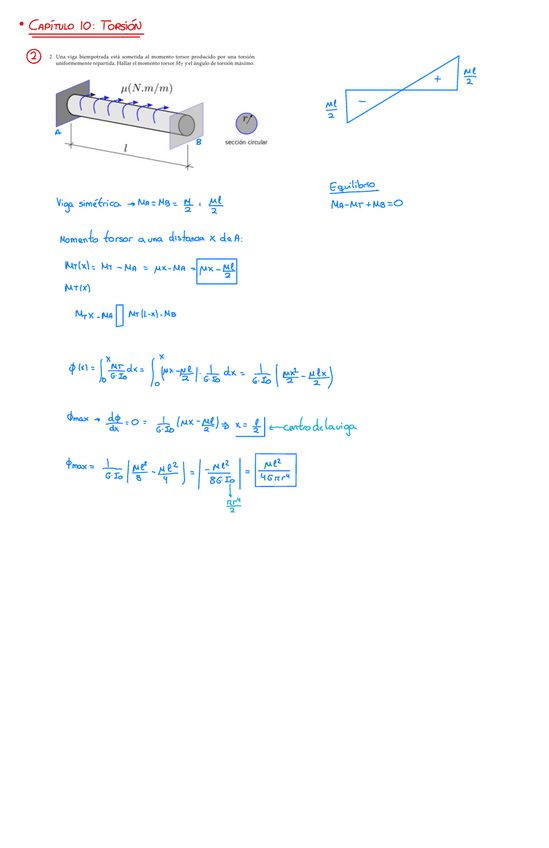 • CAPÍTULO 10: TORSIÓN
2
2. Una viga biempotrada está sometida al momento torsor producido por una torsión
uniformemente repartida. Hallar el momento torsor M_T y el ángulo de torsión máximo.
μ(N.m/m)
A
B
l
r
sección circular
μl/2
+
−
μl/2
Equilibrio
MA-MT+MB=0
Viga simétrica → MA=MB= M/2 = μl/2
Momento torsor a una distancia x de A:
MT(x) = MT - MA = μx-MA = μx - μl/2
MT(x)
MTx-MA MT(L-x)-MB
ϕ(x) = ∫₀ˣ MT/G·I₀ dx = ∫₀ˣ (μx-μl/2) · 1/G·I₀ dx = 1/G·I₀ (μx²/2 - μlx/2)
ϕmax → dϕ/dx = 0 = 1/G·I₀ (μx - μl/2) ⇒ x = l/2 ← centro de la viga
ϕmax = 1/G·I₀ (μl²/8 - μl²/4) = |-μl²/8G·I₀| = μl²/4Gπr⁴
πr⁴/2